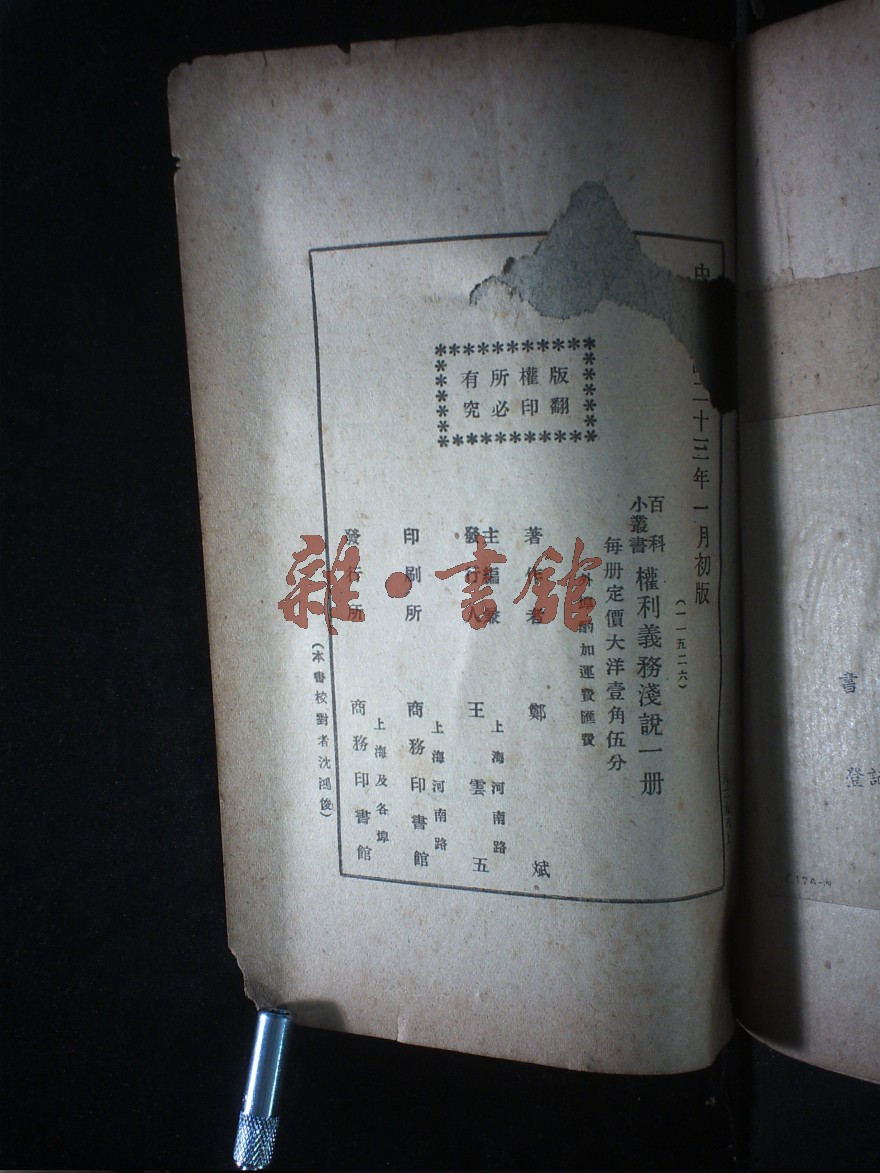 二十三年一月初版
(一一五二六)
百科
小叢書
權利義務淺說一册
每册定價大洋壹角伍分
外埠酌加運費匯費
著作者 鄭 斌
主編兼
發行人
王雲五
上海河南路
印刷所
商務印書館
上海河南路
發行所
商務印書館
上海及各埠
(本書校對者沈鴻俊)
版權所有
翻印必究
雜·書館
書
登記